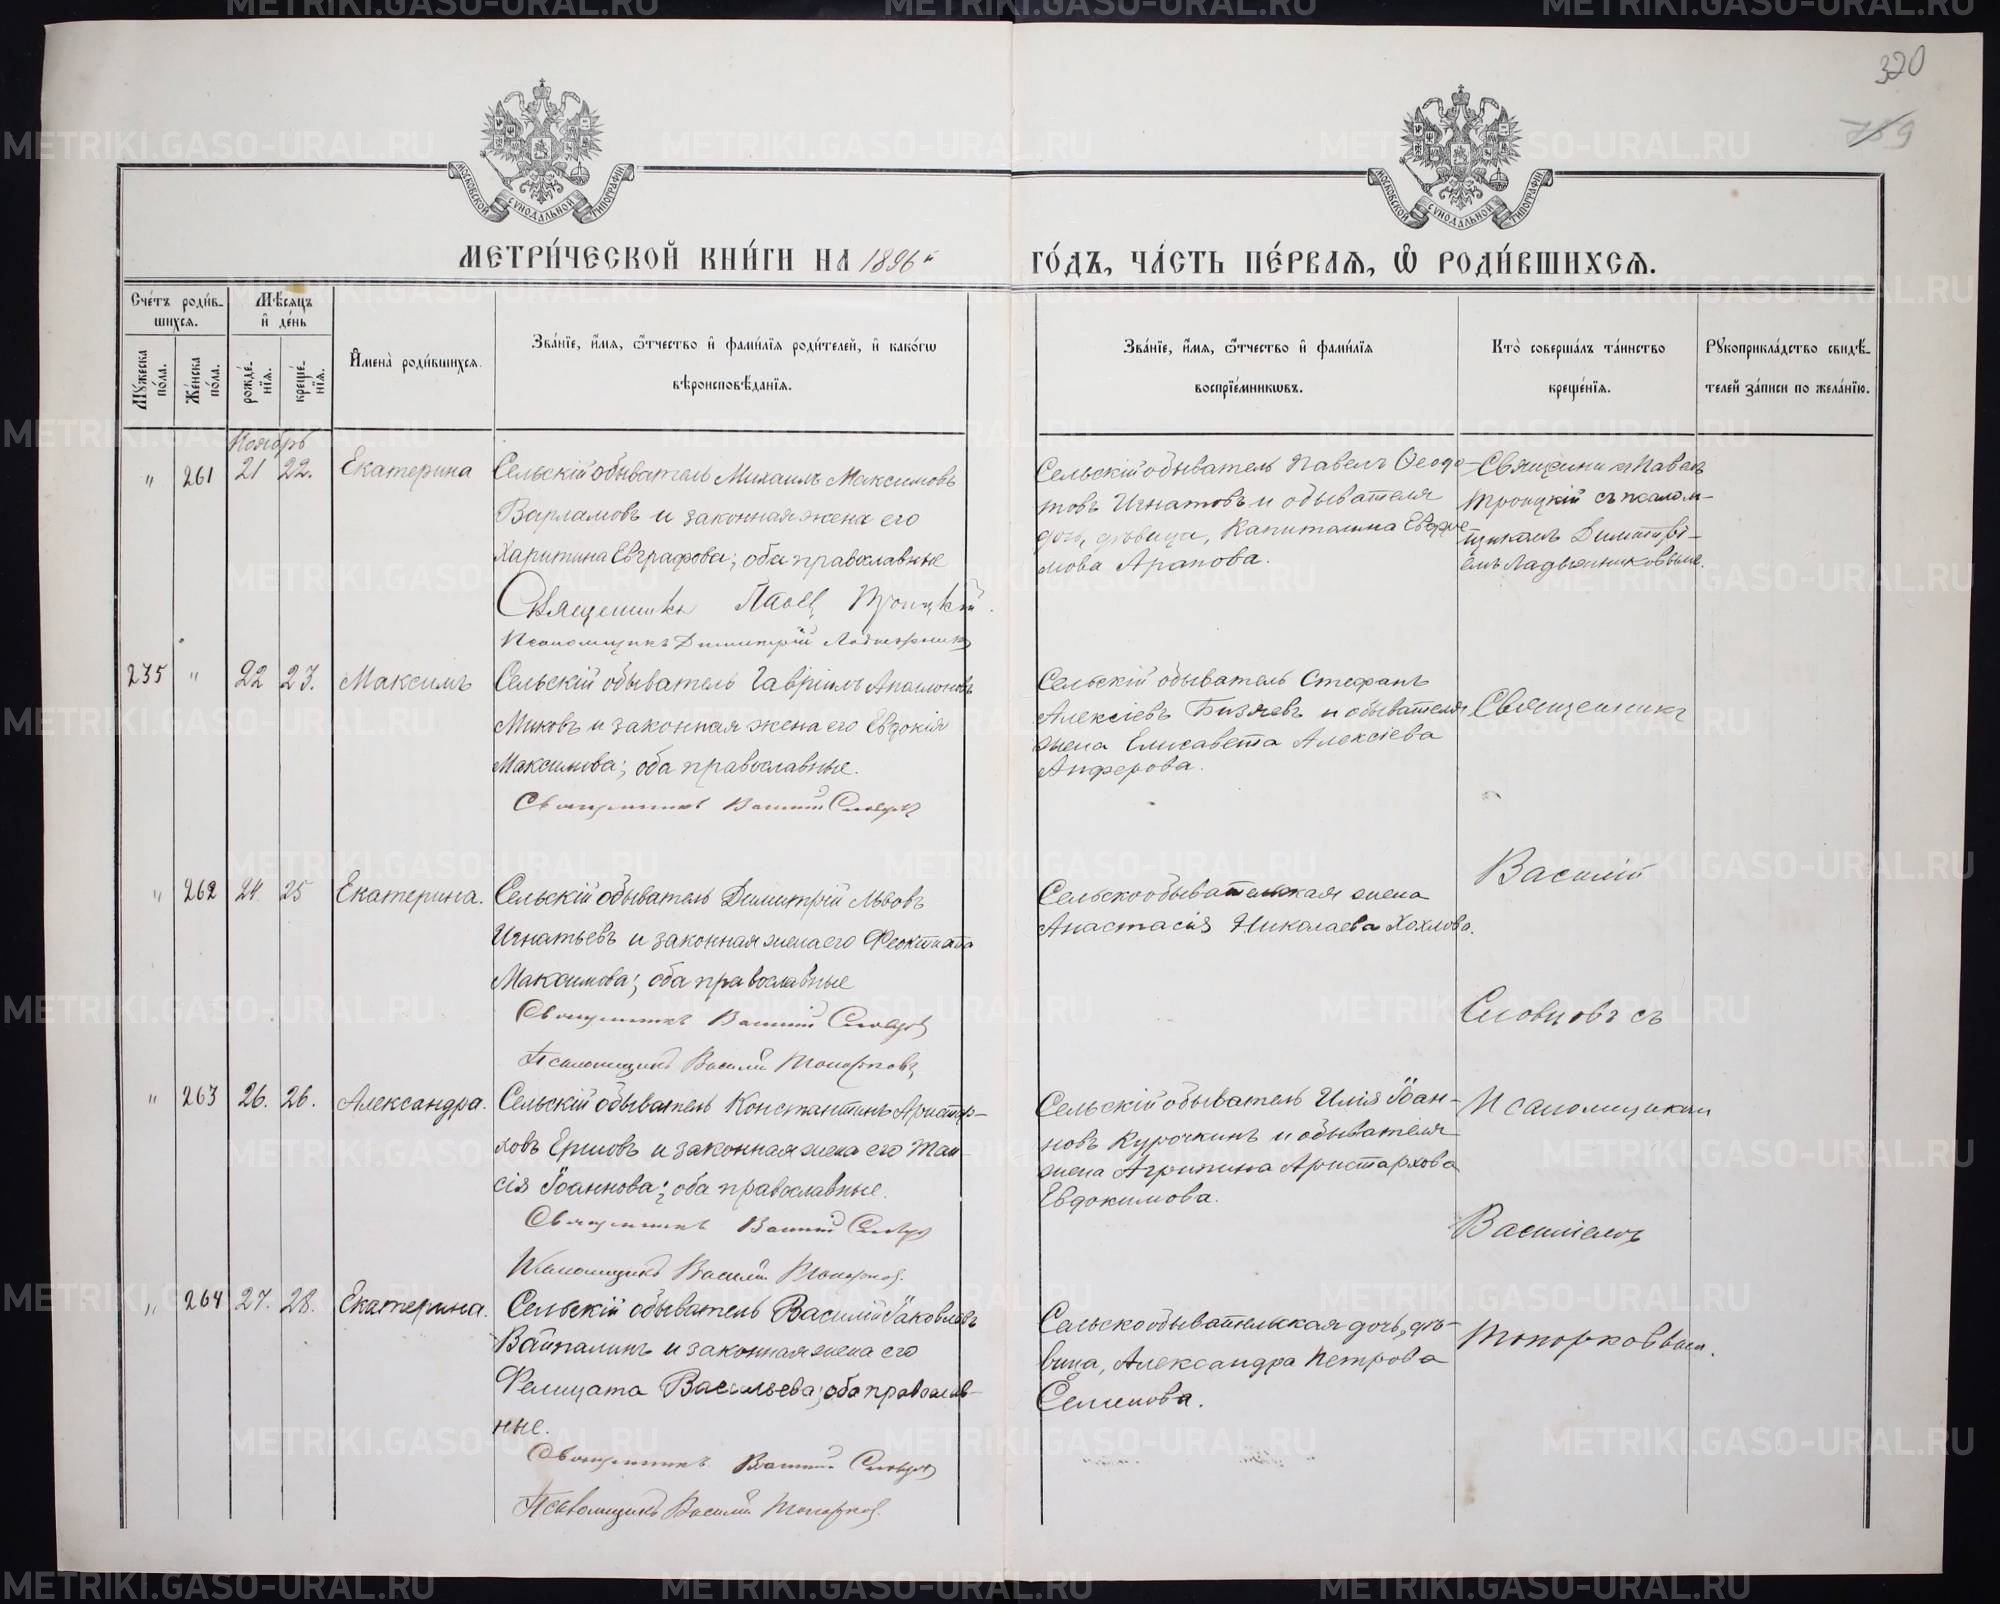 320
МОСКОВСКОЙ СУНОДАЛЬНОЙ ТИПОГРАФІИ
МОСКОВСКОЙ СУНОДАЛЬНОЙ ТИПОГРАФІИ
МЕТРИ́ЧЕСКОЙ КНИ́ГИ НА 1896й
ГО́ДЪ, ЧА́СТЬ ПЕ́РВАЯ, Ѡ РОДИ́ВШИХСЯ.
Сче́тъ роди́вшихся.
Мужеска по́ла.
Же́нска по́ла.
Мѣ́сяцъ и де́нь
рожде́нїя.
креще́нїя.
Имена̀ роди́вшихся.
Зва́нїе, и́мя, ѻ҆́тчество и фами́лїя роди́телей, и како́гѡ
вѣроисповѣ́данїя.
Зва́нїе, и́мя, ѻ҆́тчество и фами́лїя
воспрїе́мникѡвъ.
Кто̀ соверша́лъ та́инство
креще́нїя.
Рукоприкла́дство свидѣ́-
телей за́писи по жела́нїю.
Ноябрь
" 261 21 22. Екатерина
Сельскій обыватель Михаилъ Максимовъ
Варламовъ и законная жена его
Харитина Евграфова; оба православные
Священникъ Павелъ Троицкій.
Псаломщикъ Димитрій
Сельскій обыватель Павелъ Ѳеодо-
товъ Игнатовъ и обывателя
дочь, дѣвица, Капитолина
Арапова.
Священникъ Павелъ
Троицкій съ псалом-
щикомъ Димитрі-
емъ Ладыжниковымъ.
235 " 22 23. Максимъ
Сельскій обыватель Гавріилъ Аполлоновъ
Миковъ и законная жена его Евдокія
Максимова; оба православные.
Священникъ Василій Словцовъ
Сельскій обыватель Стефанъ
Алексіевъ Бизяевъ и обывателя
жена Елисавета Алексіева
Анферова.
Священникъ
Василій
Словцовъ съ
Псаломщикомъ
Василіемъ
Топорковымъ.
" 262 24. 25 Екатерина.
Сельскій обыватель Димитрій Львовъ
Игнатьевъ и законная жена его Феоктиста
Максимова; оба православные
Священникъ Василій Словцовъ
Псаломщикъ Василій Топорковъ
Сельскообывательская жена
Анастасія Николаева Хохлова.
" 263 26. 26. Александра.
Сельскій обыватель Константинъ Аристар-
ховъ Ершовъ и законная жена его Таи-
сія Іоаннова; оба православные.
Священникъ Василій Словцовъ
Псаломщикъ Василій Топорковъ.
Сельскій обыватель Илія Іоан-
новъ Курочкинъ и обывателя
жена Агрипина Аристархова
Евдокимова.
" 264 27. 28. Екатерина.
Сельскій обыватель Василій Іаковлевъ
Вайпалинъ и законная жена его
Фелицата Васильева; оба православ-
ные.
Священникъ Василій Словцовъ
Псаломщикъ Василій Топорковъ.
Сельскообывательская дочь, дѣ-
вица, Александра Петрова
Семенова.
METRIKI.GASO-URAL.RU